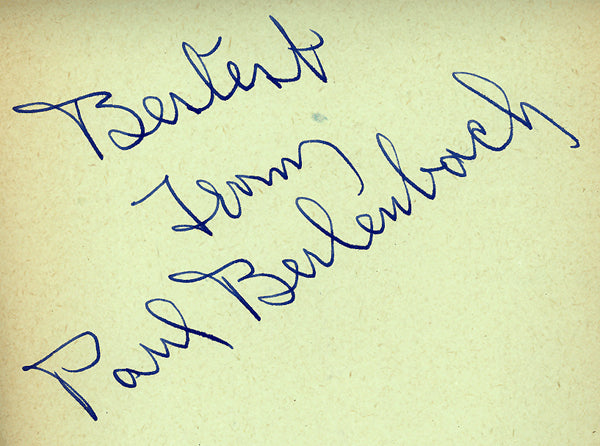 Bestest
From
Paul Berlenbach